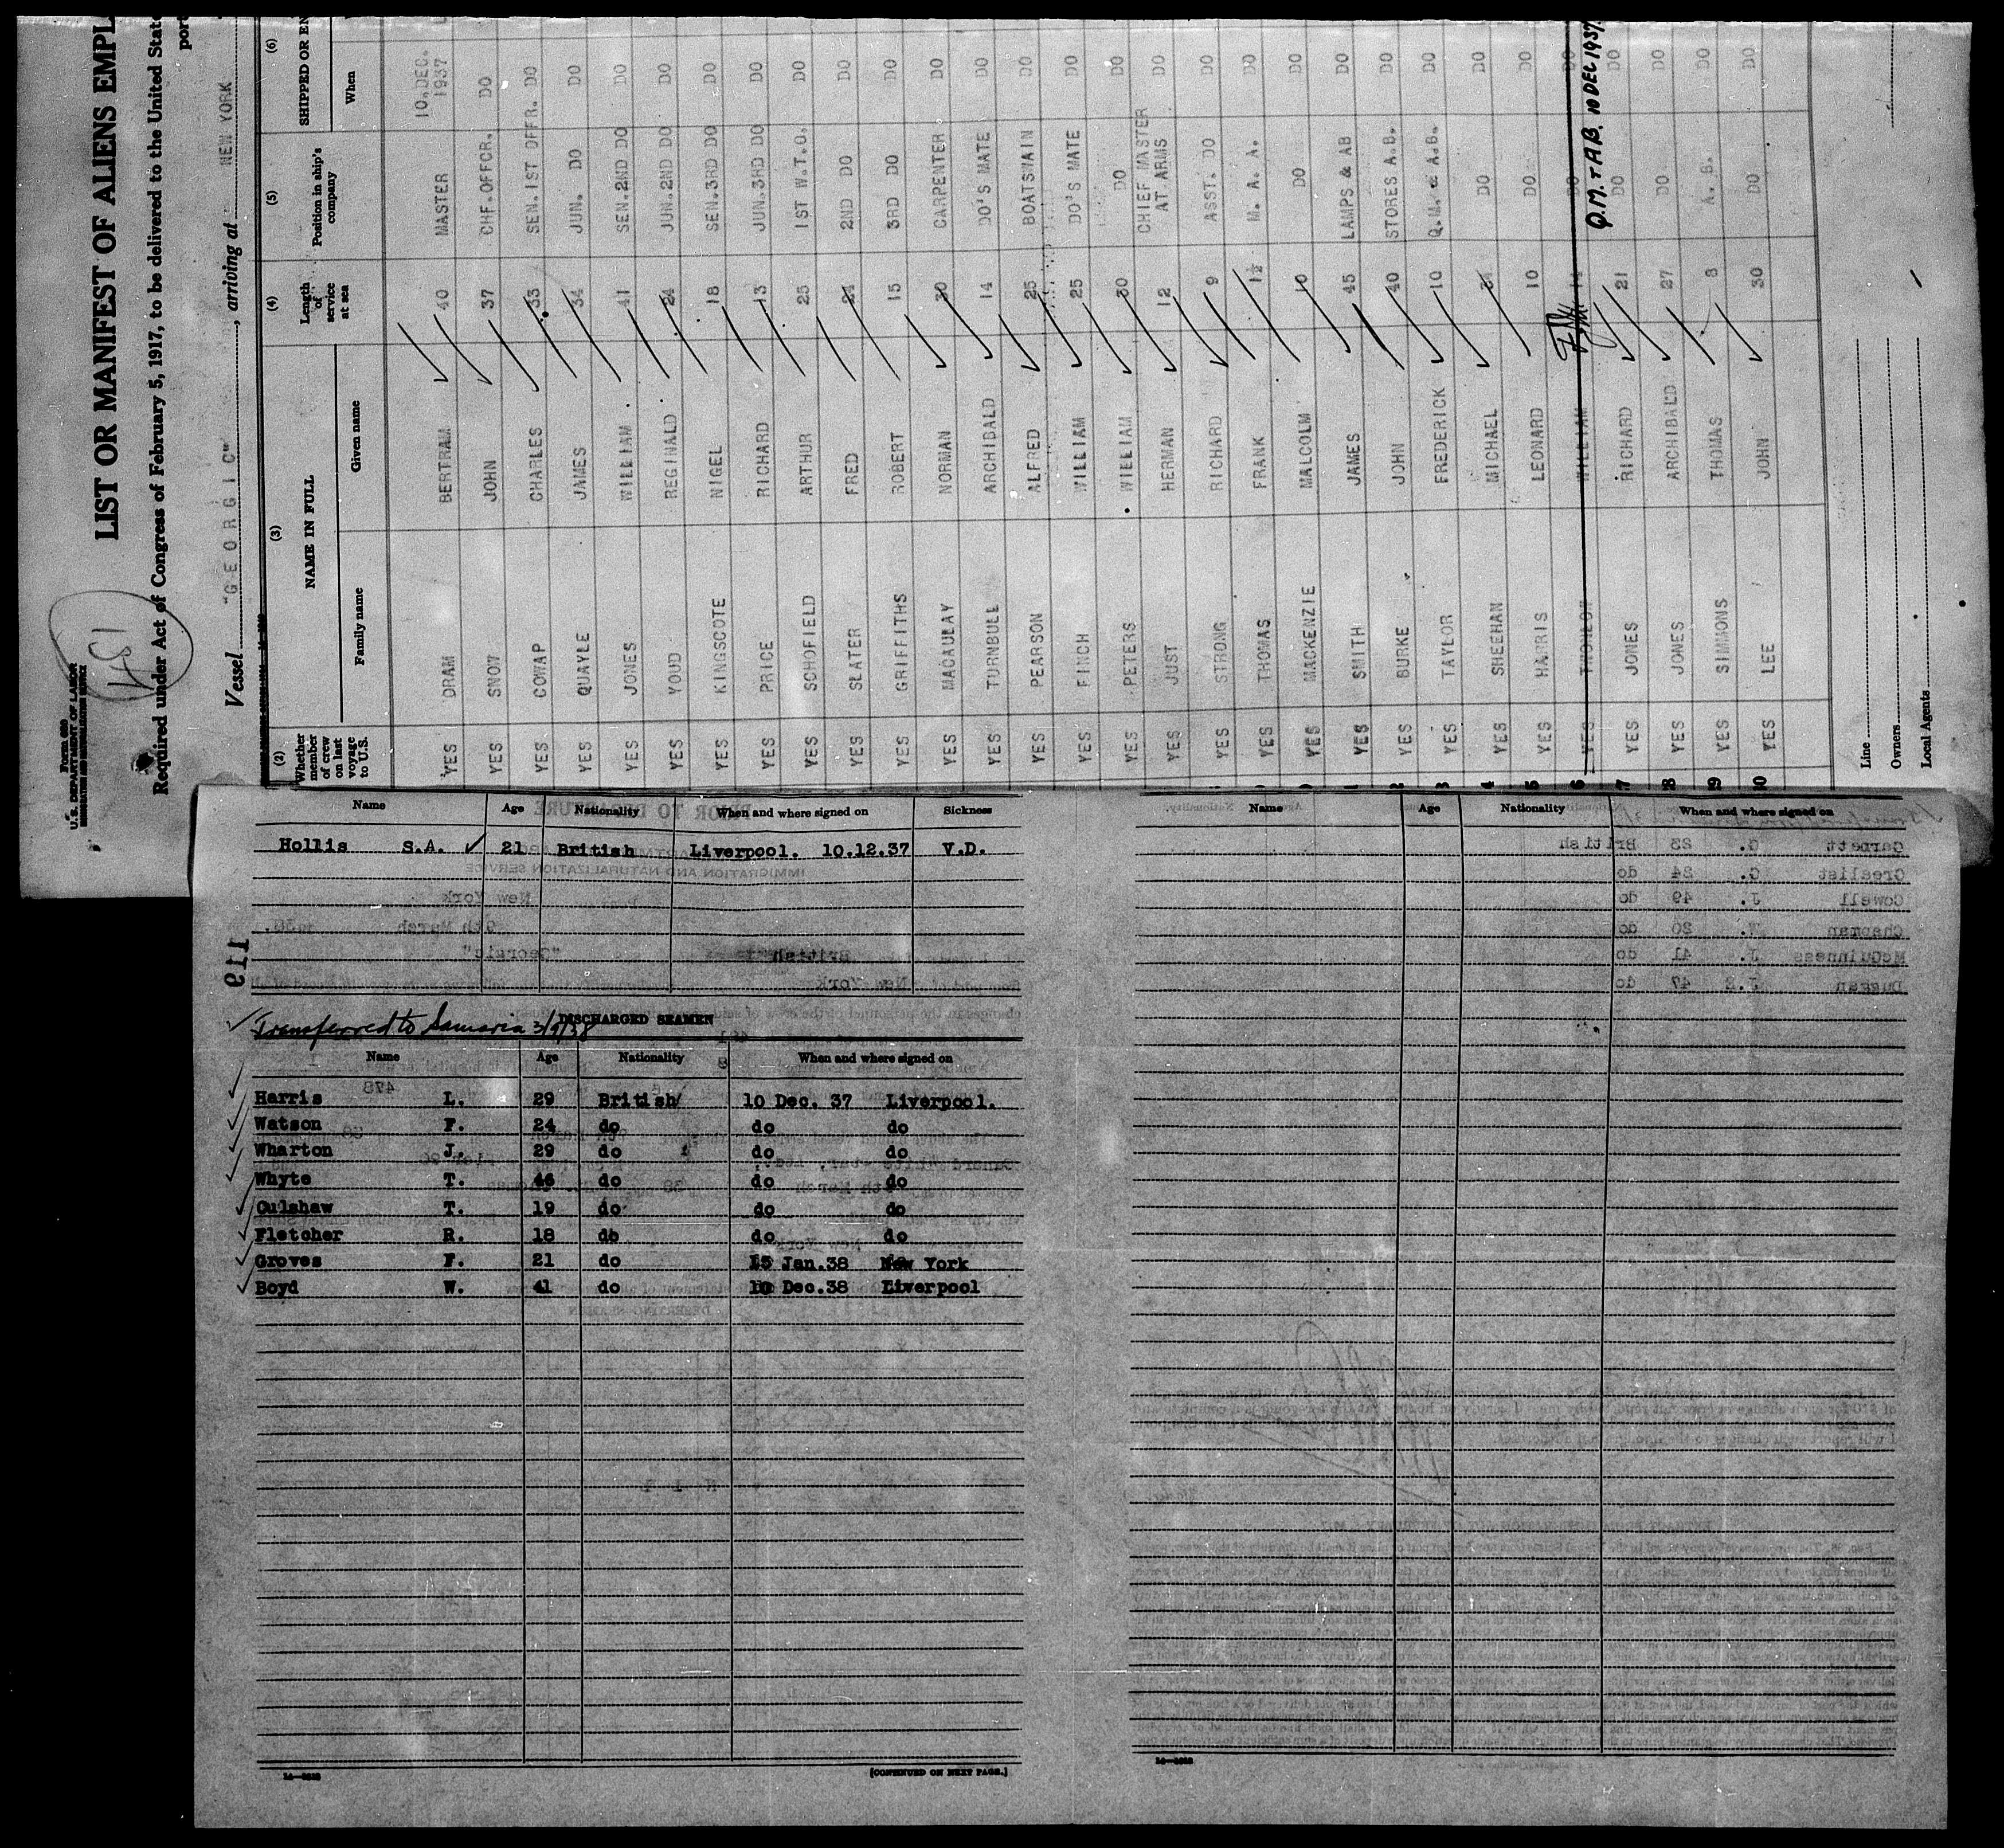 Form 689
U.S. DEPARTMENT OF LABOR
IMMIGRATION AND NATURALIZATION SERVICE
451
LIST OR MANIFEST OF ALIENS EMPL
Required under Act of Congress of February 5, 1917, to be delivered to the United Stat
port
Vessel "GEORGIC", arriving at NEW YORK
(2) (3) (4) (5) (6)
Whether member of crew on last voyage to U.S. NAME IN FULL Length of service at sea Position in ship's company SHIPPED OR EN
Family name Given name When
YES DRAM BERTRAM 40 MASTER 10,DEC. 1937
YES SNOW JOHN 37 CHF.OFFCR. DO
YES COWAP CHARLES 33 SEN.1ST OFFR. DO
YES QUAYLE JAMES 34 JUN. DO DO
YES JONES WILLIAM 41 SEN.2ND DO DO
YES YOUD REGINALD 24 JUN.2ND DO DO
YES KINGSCOTE NIGEL 18 SEN.3RD DO DO
YES PRICE RICHARD 13 JUN.3RD DO DO
YES SCHOFIELD ARTHUR 25 1ST W.T.O. DO
YES SLATER FRED 24 2ND DO DO
YES GRIFFITHS ROBERT 15 3RD DO DO
YES MACAULAY NORMAN 30 CARPENTER DO
YES TURNBULL ARCHIBALD 14 DO'S MATE DO
YES PEARSON ALFRED 25 BOATSWAIN DO
YES FINCH WILLIAM 25 DO'S MATE DO
YES PETERS WILLIAM 30 DO DO
YES JUST HERMAN 12 CHIEF MASTER AT ARMS DO
YES STRONG RICHARD 9 ASST. DO DO
YES THOMAS FRANK 1½ M. A. A. DO
YES MACKENZIE MALCOLM 10 DO DO
YES SMITH JAMES 45 LAMPS & AB DO
YES BURKE JOHN 40 STORES A.B. DO
YES TAYLOR FREDERICK 10 Q.M. & A.B. DO
YES SHEEHAN MICHAEL DO DO
YES HARRIS LEONARD 10 DO DO
YES WILLIAM 14 DO DO
Q.M. + A.B. 10 DEC 1937.
27 YES JONES RICHARD 21 DO DO
28 YES JONES ARCHIBALD 27 DO DO
29 YES SIMMONS THOMAS 8 A. B. DO
30 YES LEE JOHN 30 DO DO
Line
Owners
Local Agents
Name Age Nationality When and where signed on Sickness
Hollis S.A. 21 British Liverpool. 10.12.37 V.D.
1119
Transferred to Samaria 3/9/38 DISCHARGED SEAMEN
Name Age Nationality When and where signed on
Harris L. 29 British 10 Dec. 37 Liverpool.
Watson F. 24 do do do
Wharton J. 29 do do do
Whyte T. 46 do do do
Culshaw T. 19 do do do
Fletcher R. 18 do do do
Groves F. 21 do 15 Jan.38 New York
Boyd W. 41 do 10 Dec.38 Liverpool
14—2628
[CONTINUED ON NEXT PAGE.]
Name Age Nationality When and where signed on
Garnett G. 23 British
Grealist G. 24 do
Cowell J. 49 do
Chapman W. 20 do
McGuinness J. 41 do
Duggan 47 do
14—2628